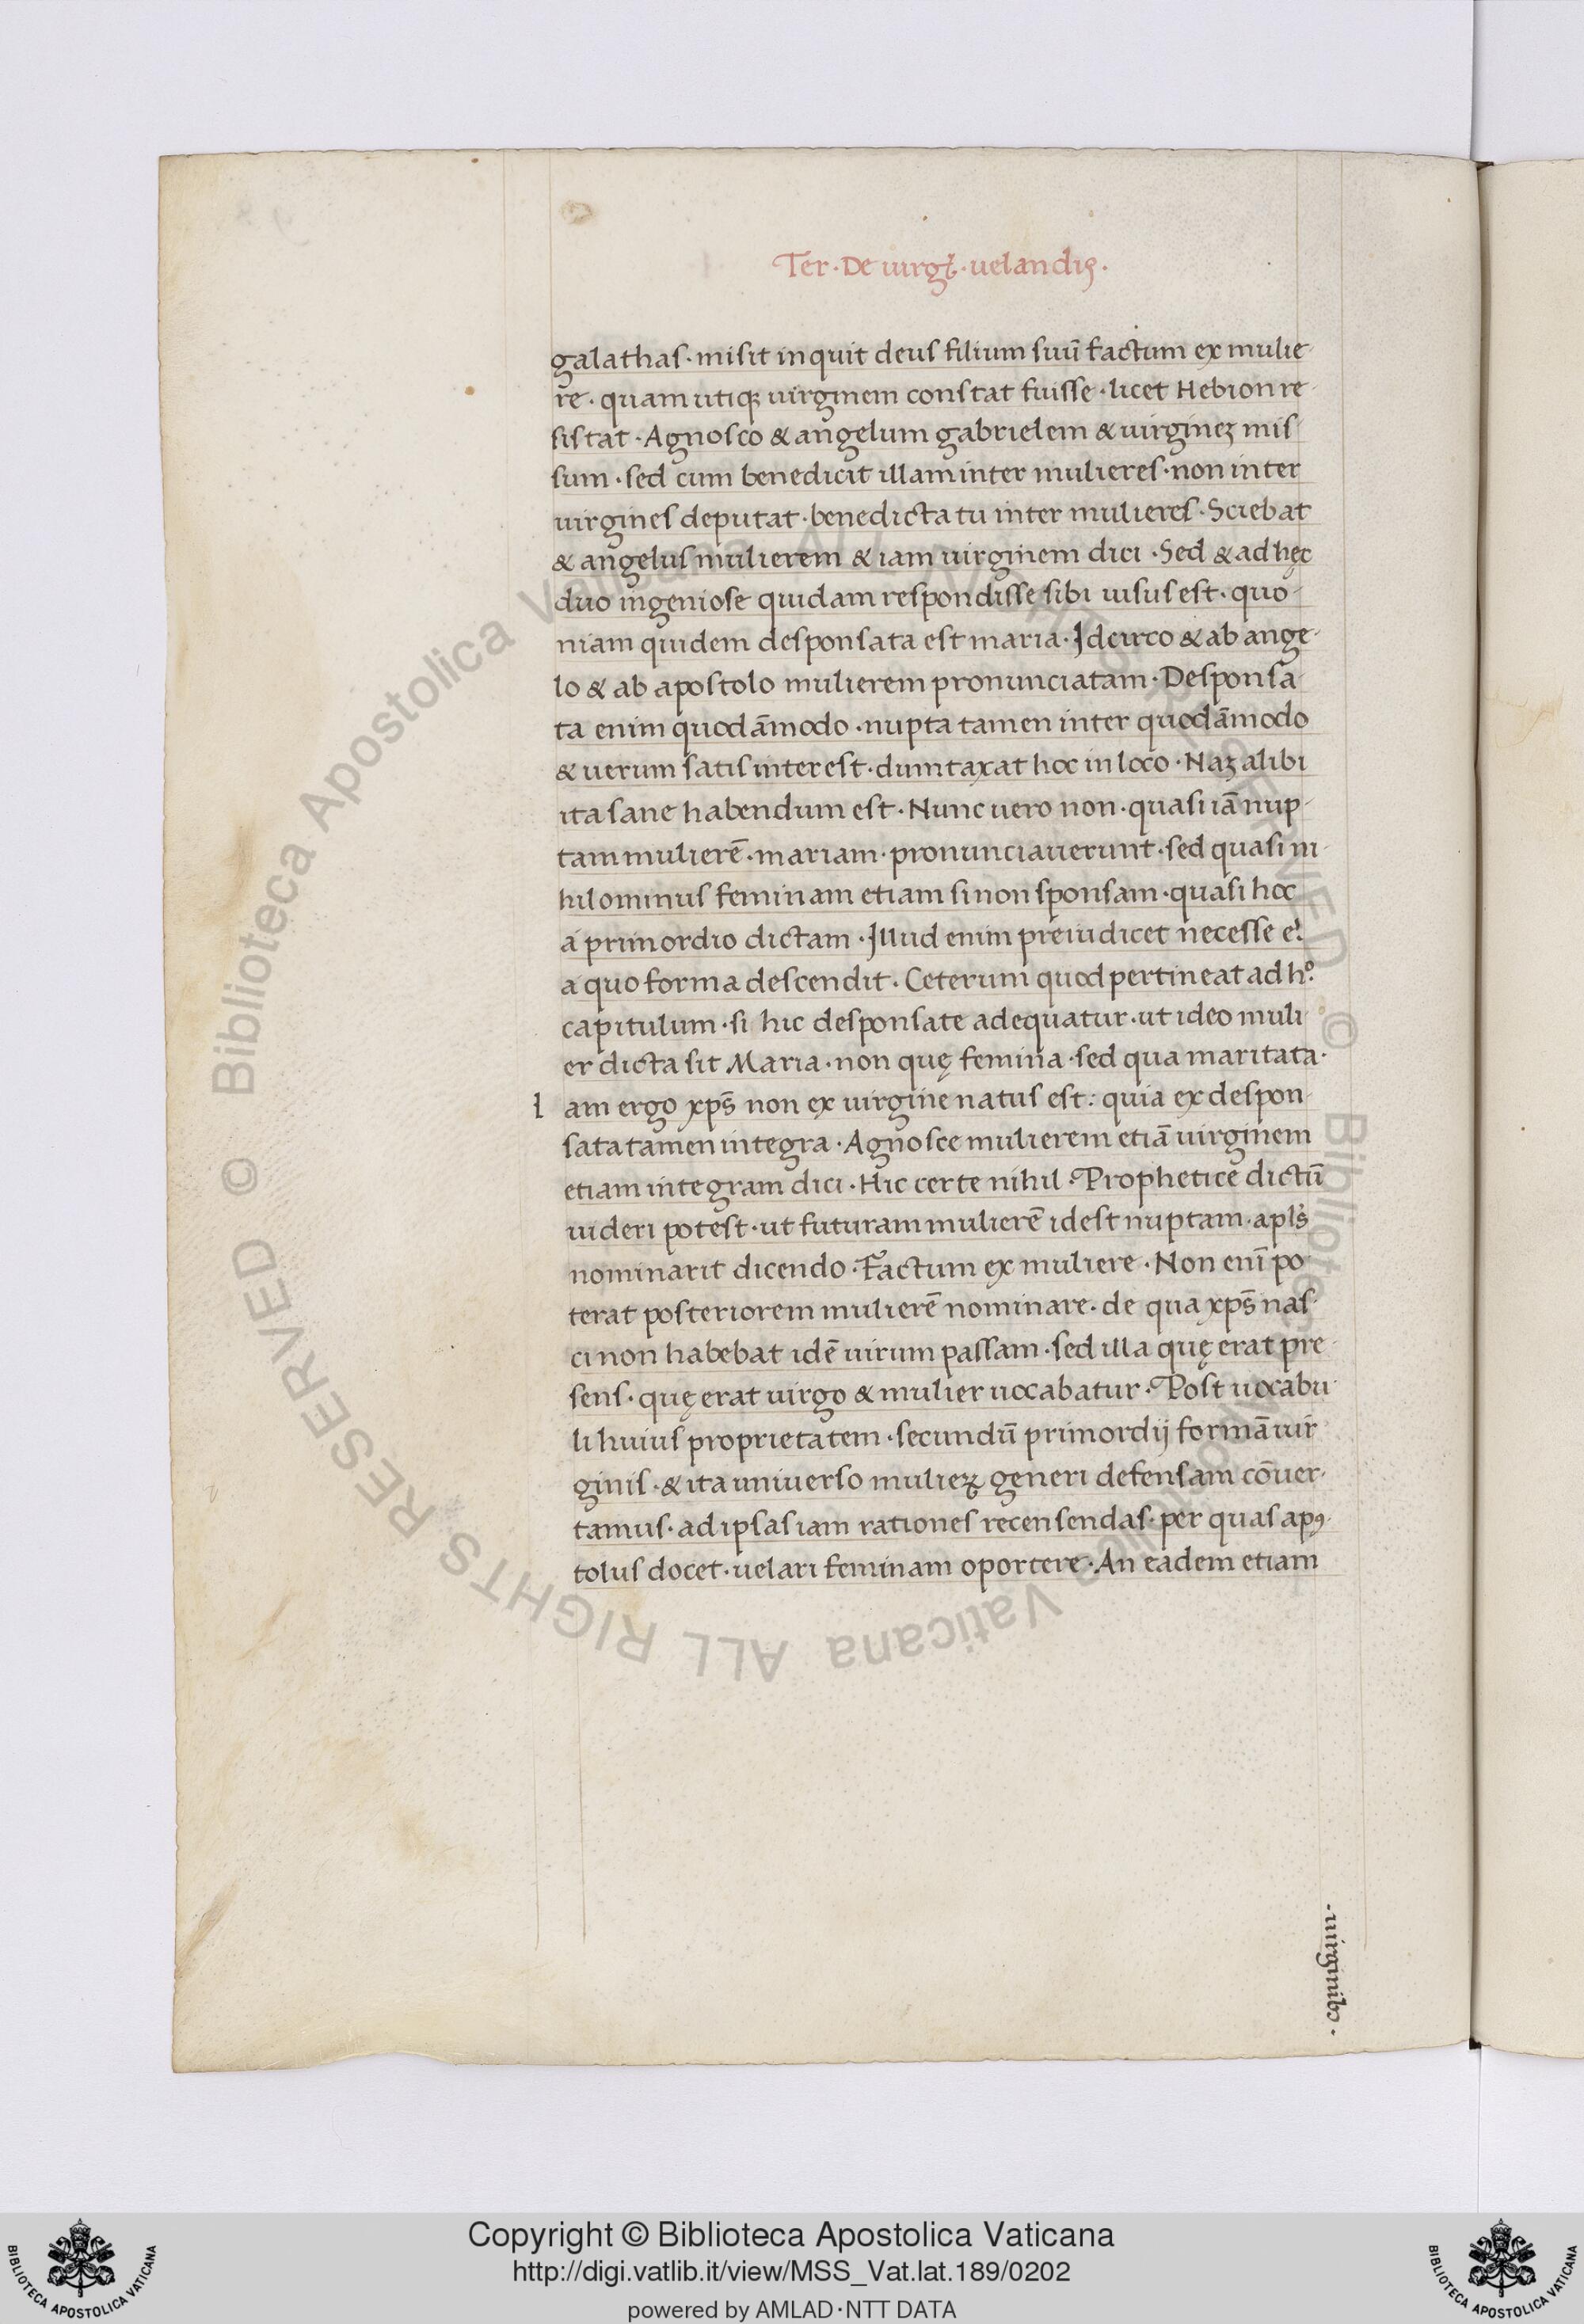 Ter · De uirgł · uelandis ·
galathas · misit inquit deus filium suū factum ex mulie-
re · quam utiqꝫ uirginem constat fuisse · licet Hebion re-
sistat · Agnosco & angelum gabrielem & uirgineꝫ mis-
sum · sed cum benedicit illam inter mulieres · non inter
uirgines deputat · benedicta tu inter mulieres · Sciebat
& angelus mulierem & iam uirginem dici · Sed & ad hęc
duo ingeniose quidam respondisse sibi uisus est · quo-
niam quidem desponsata est maria · Idcirco & ab ange-
lo & ab apostolo mulierem pronunciatam · Desponsa-
ta enim quodāmodo · nupta tamen inter quodāmodo
& uerum satis interest · dumtaxat hoc in loco · Naꝫ alibi
ita sane habendum est · Nunc uero non · quasi iā nup-
tam mulierē · mariam · pronunciauerunt · sed quasi ni-
hilominus feminam etiam si non sponsam · quasi hoc
a primordio dictam · Illud enim preiudicet necesse e·
a quo forma descendit · Ceterum quod pertineat ad hº
capitulum · si hic desponsate adequatur · ut ideo muli-
er dicta sit Maria · non quę femina · sed qua maritata ·
i am ergo xp̄s non ex uirgine natus est : quia ex despon-
sata tamen integra · Agnosce mulierem etiā uirginem
etiam integram dici · Hic certe nihil · Prophetice dictū
uideri potest · ut futuram mulierē idest nuptam · apl's
nominarit dicendo · Factum ex muliere · Non enī po-
terat posteriorem mulierē nominare · de qua xp̄s nas-
ci non habebat idē uirum passam · sed illa quę erat pre-
sens · quę erat uirgo & mulier uocabatur · Post uocabu-
li huius proprietatem · secundū primordij formā uir-
ginis · & ita uniuerso mulieꝝ generi defensam cōuer-
tamus · ad ipsas iam rationes recensendas · per quas apꝰ-
tolus docet · uelari feminam oportere · An eadem etiam
· uirginibꝰ ·
Copyright © Biblioteca Apostolica Vaticana
http://digi.vatlib.it/view/MSS_Vat.lat.189/0202
powered by AMLAD·NTT DATA
BIBLIOTECA APOSTOLICA VATICANA
BIBLIOTECA APOSTOLICA VATICANA
© Biblioteca Apostolica Vaticana ALL RIGHTS RESERVED © Biblioteca Apostolica Vaticana ALL RIGHTS RESERVED